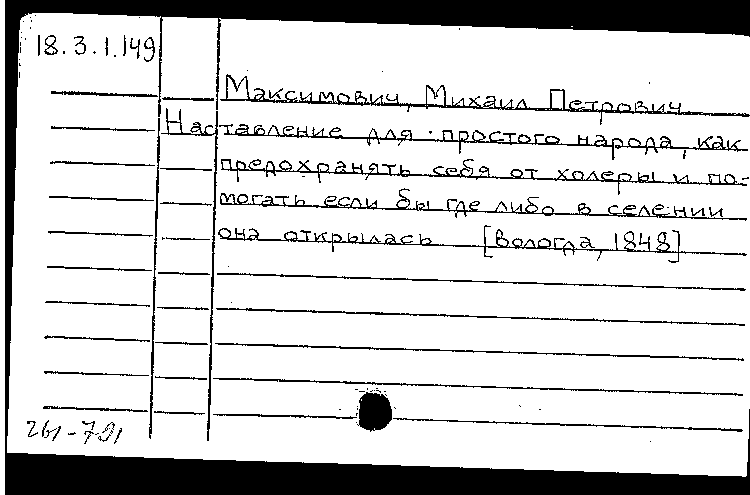 18.3.1.149
Максимович, Михаил Петрович
Наставление для простого народа, как
предохранять себя от холеры и по-
могать если бы где либо в селении
она открылась [Вологда, 1848]